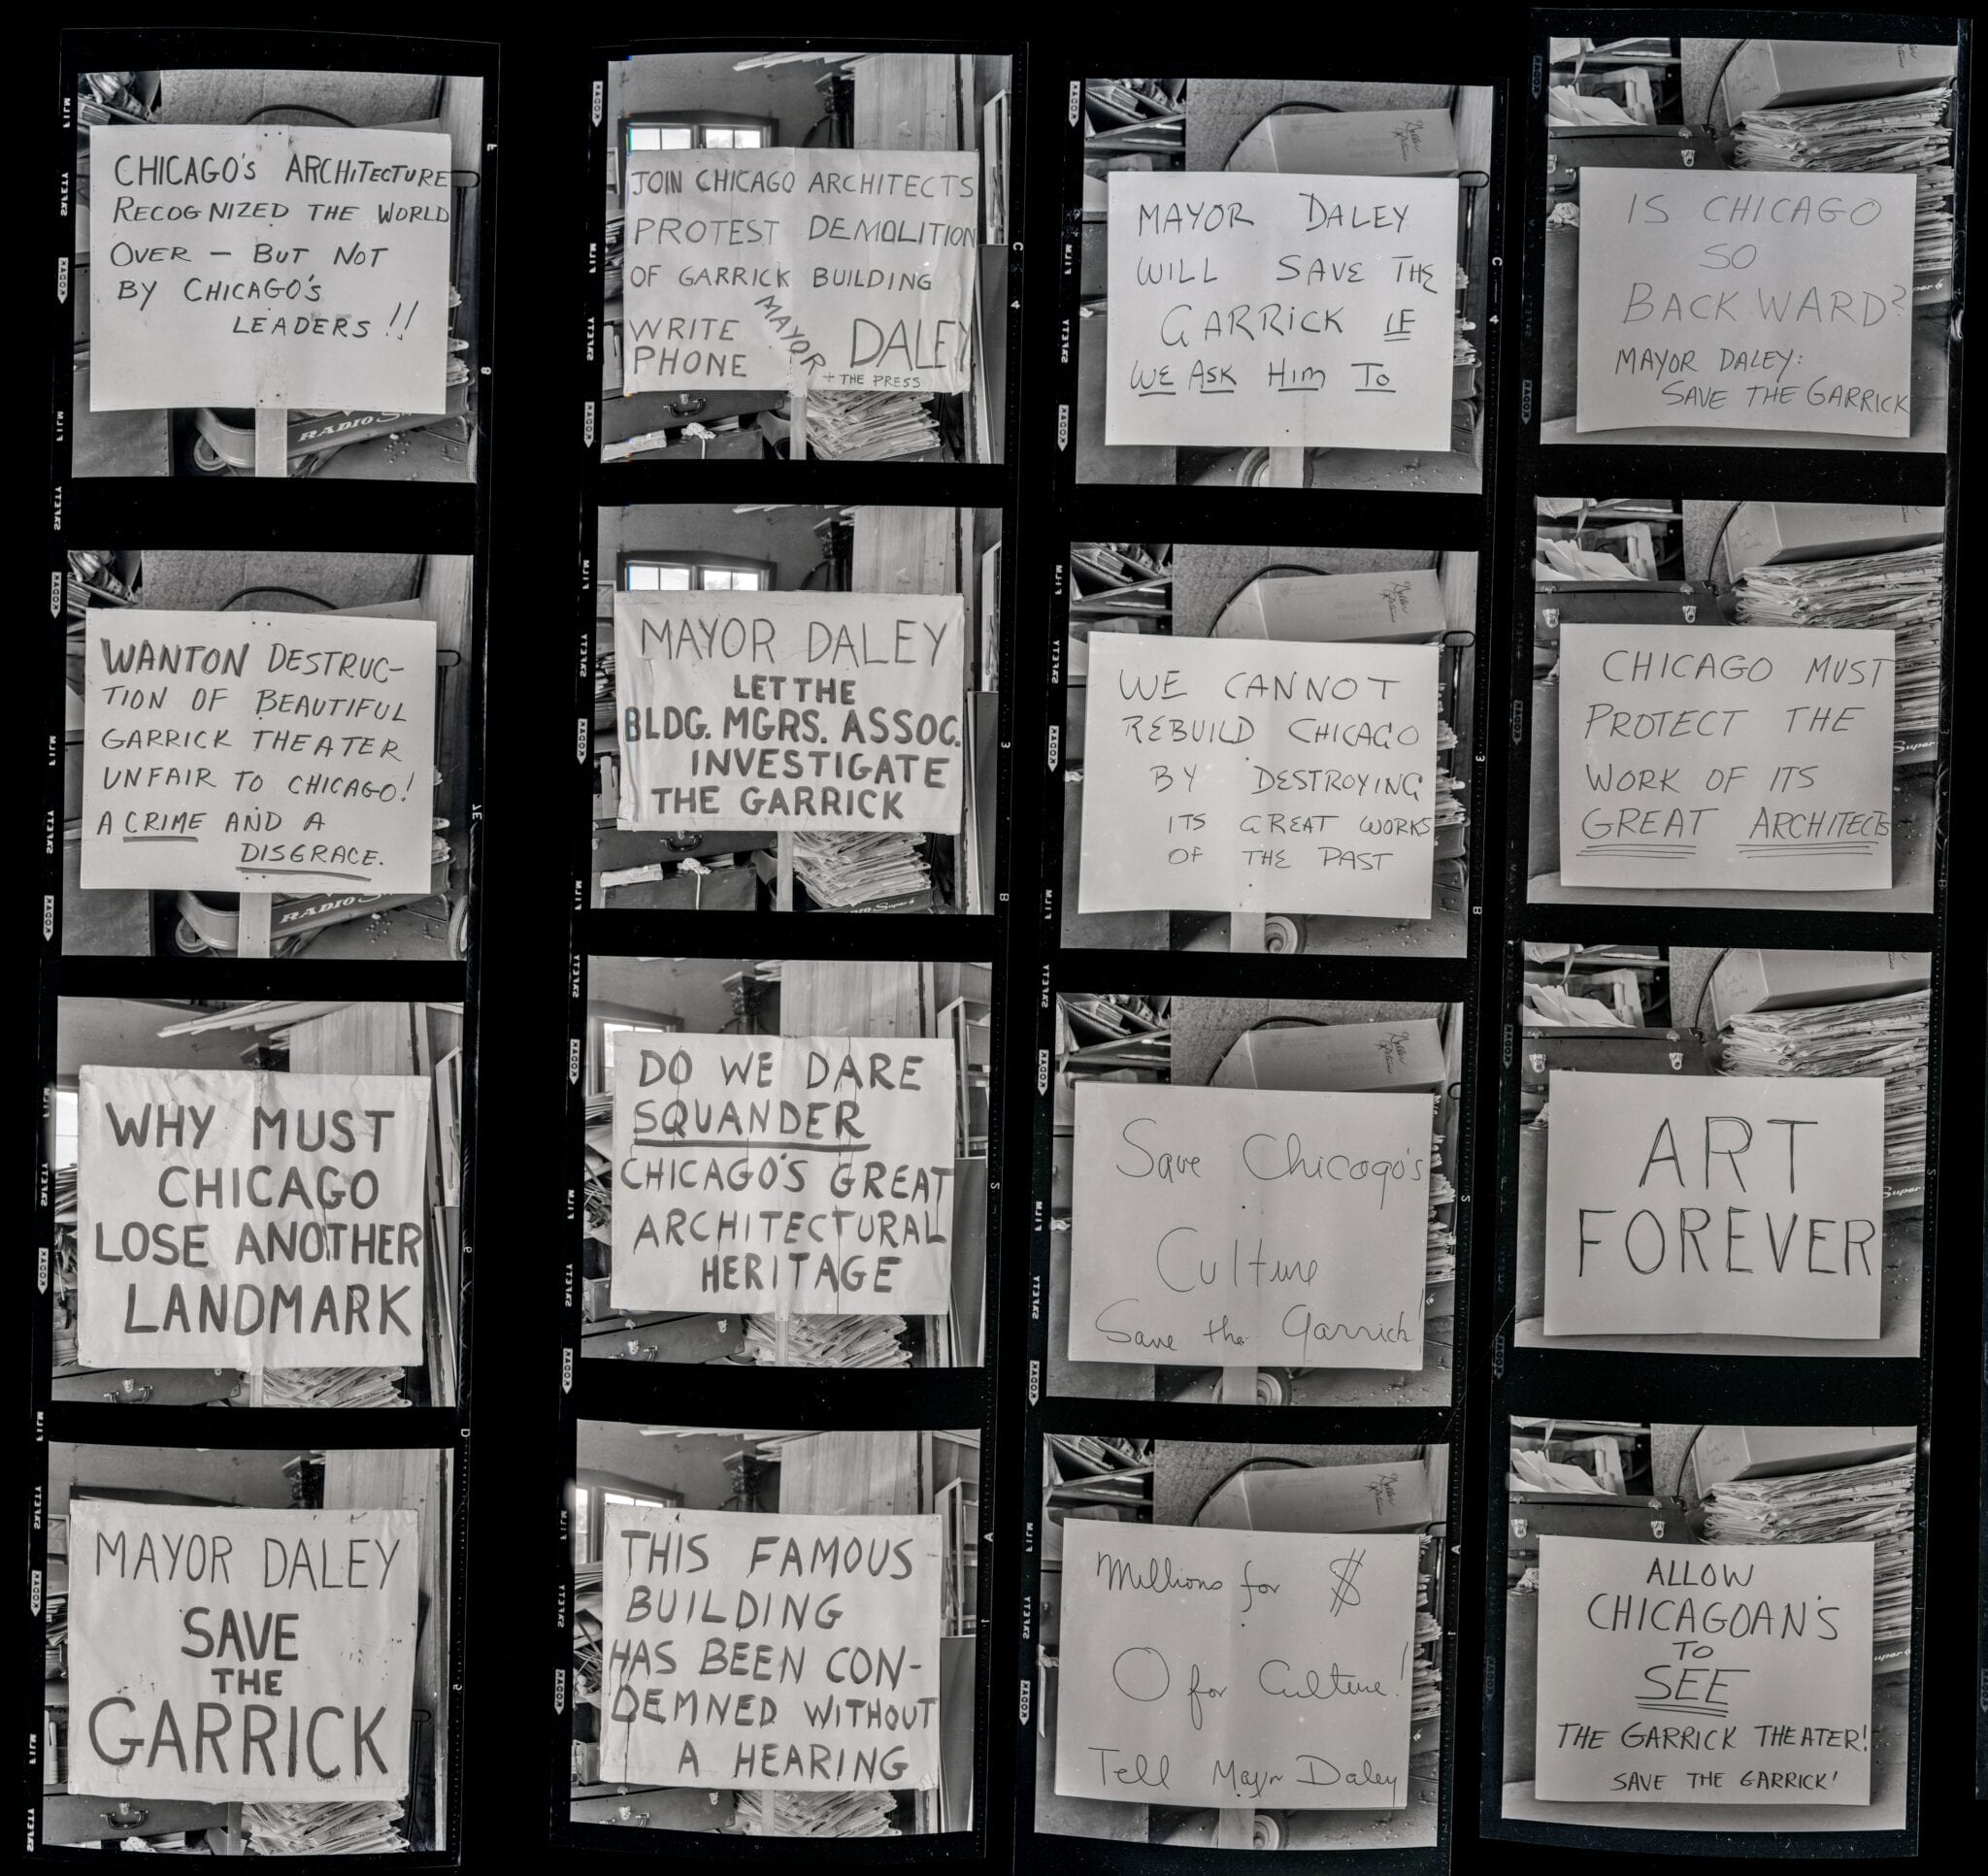 CHICAGO'S ARCHITECTURE
RECOGNIZED THE WORLD
OVER — BUT NOT
BY CHICAGO'S
LEADERS!!
RADIO
WANTON DESTRUC-
TION OF BEAUTIFUL
GARRICK THEATER
UNFAIR TO CHICAGO!
A CRIME AND A
DISGRACE.
RADIO
WHY MUST
CHICAGO
LOSE ANOTHER
LANDMARK
MAYOR DALEY
SAVE
THE
GARRICK
JOIN CHICAGO ARCHITECTS
PROTEST DEMOLITION
OF GARRICK BUILDING
WRITE
PHONE
MAYOR
DALEY
+ THE PRESS
MAYOR DALEY
LET THE
BLDG. MGRS. ASSOC.
INVESTIGATE
THE GARRICK
Super
DO WE DARE
SQUANDER
CHICAGO'S GREAT
ARCHITECTURAL
HERITAGE
THIS FAMOUS
BUILDING
HAS BEEN CON-
DEMNED WITHOUT
A HEARING
MAYOR DALEY
WILL SAVE THE
GARRICK IF
WE ASK HIM TO
WE CANNOT
REBUILD CHICAGO
BY DESTROYING
ITS GREAT WORKS
OF THE PAST
Save Chicago's
Culture
Save the Garrick!
Millions for $
0 for Culture!
Tell Mayor Daley
IS CHICAGO
SO
BACKWARD?
MAYOR DALEY:
SAVE THE GARRICK
CHICAGO MUST
PROTECT THE
WORK OF ITS
GREAT ARCHITECTS
Super
ART
FOREVER
Super
ALLOW
CHICAGOAN'S
TO
SEE
THE GARRICK THEATER!
SAVE THE GARRICK!
KODAK
SAFETY
FILM